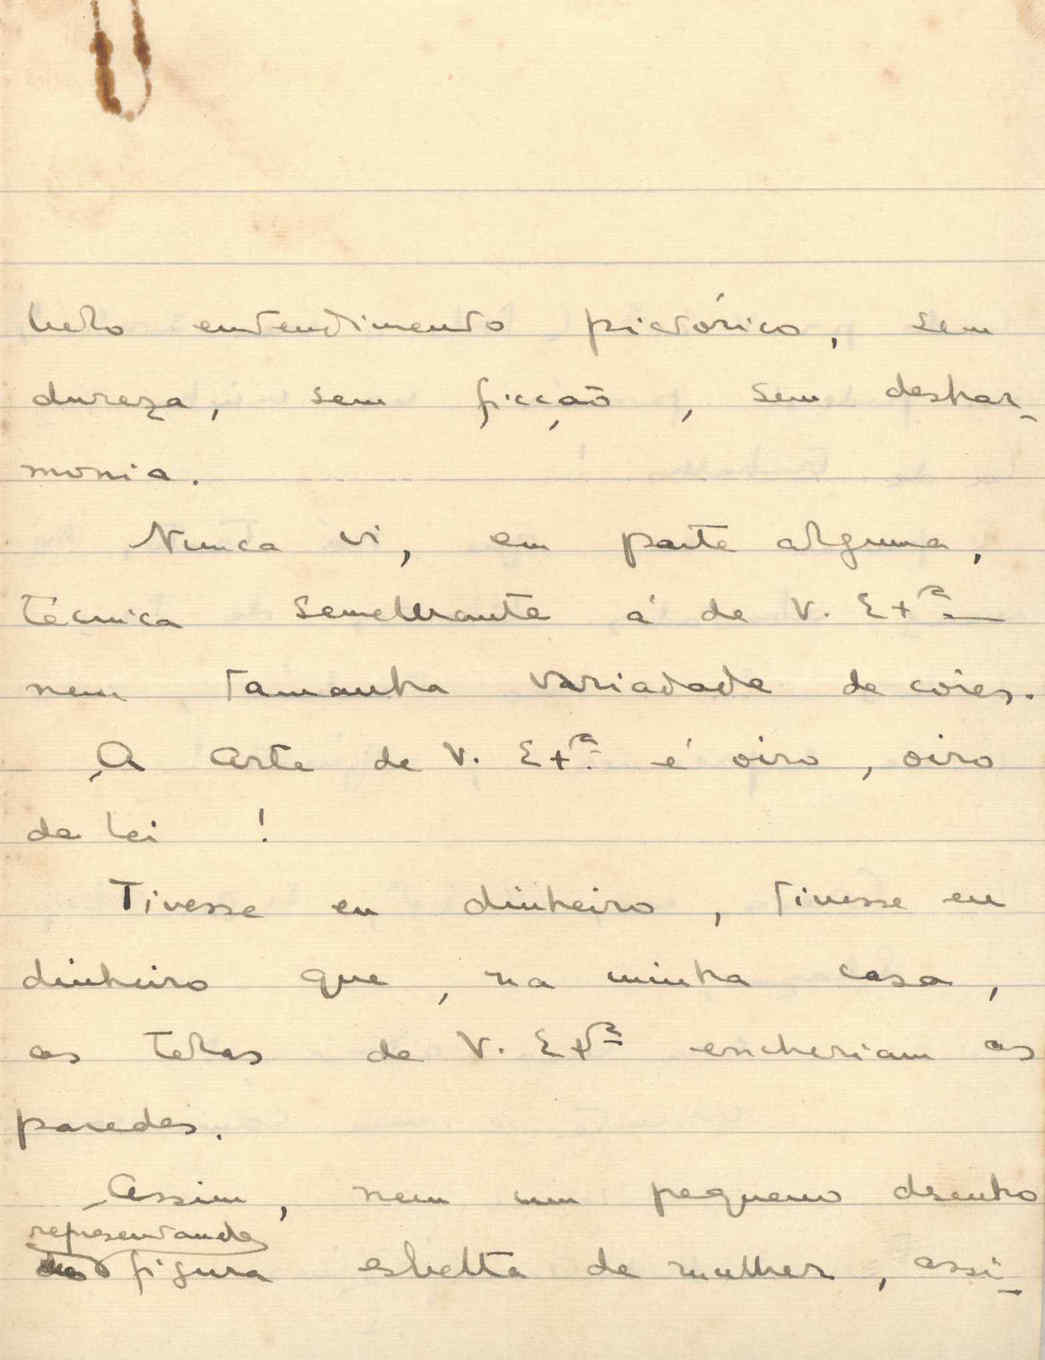 belo entendimento pictórico, sem
dureza, sem ficção, sem deshar-
monia.
Nunca vi, em parte alguma,
técnica semelhante á de V. Exª
nem tamanha variadade de cores.
A Arte de V. Exª é oiro, oiro
de lei !
Tivesse eu dinheiro, tivesse eu
dinheiro que, na minha casa,
as telas de V. Exª encheriam as
paredes.
Assim, nem um pequeno dsenho
representando
figura esbelta de mulher, assi-